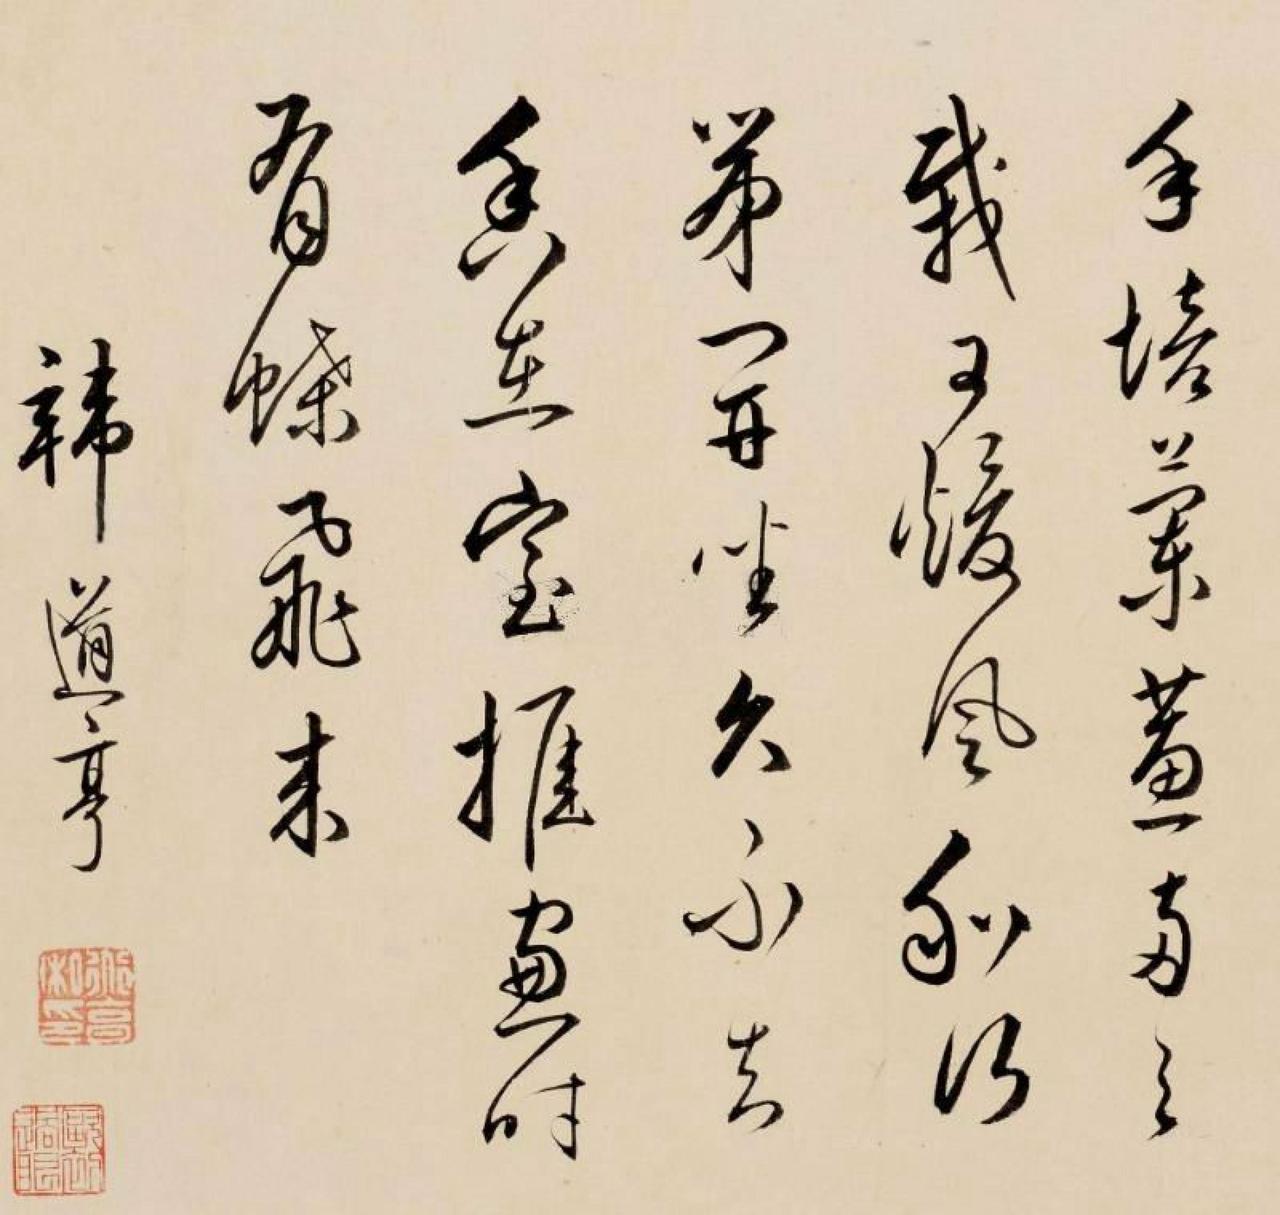 手培蘭蕙两三
栽日暖風和次
第開坐久不知
香在室推窗時
有蝶飛來
韓道亨